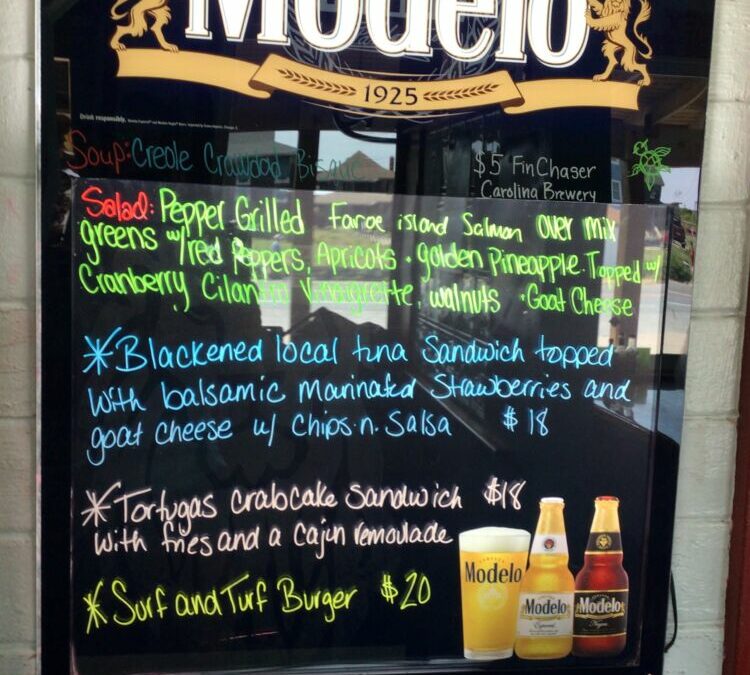 Modelo
1925
Drink responsibly.
Soup: Creole Crawdad Bisque
$5 FinChaser
Carolina Brewery
Salad: Pepper Grilled Faroe island Salmon over mix
greens w/red Peppers, Apricots · golden Pineapple. Topped w/
Cranberry Cilantro Vinaigrette, walnuts · Goat Cheese
*Blackened local tuna Sandwich topped
with balsamic marinated Strawberries and
goat cheese w/ chips·n·Salsa $18
*Tortugas crabcake sandwich $18
with fries and a cajun remoulade
*Surf and Turf Burger $20
Modelo
Modelo
Especial
Modelo
Negra